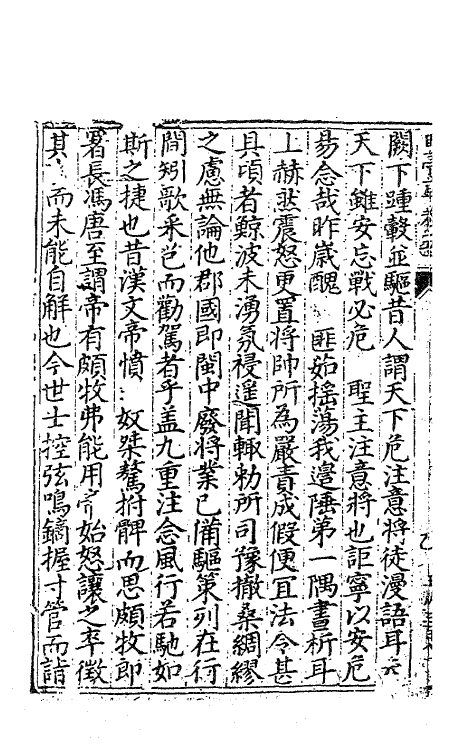 闕下踵轂並驅昔人謂天下危注意將徒漫語耳夫
天下雖安忘戰必危　聖主注意將也詎寧以安危
易念哉昨歲醜　匪茹揺蕩我邊陲第一隅晝析耳
上赫然震怒更置將帥所為嚴責成假便冝法令甚
具頃者鯨波未湧氛祲遥聞輙勅所司豫撤桑綢繆
之慮無論他郡國即閩中廢將業已備驅策列在行
間矧歌采芑而勸駕者乎盖九重注念風行若馳如
斯之捷也昔漢文帝憤　奴桀驁拊髀而思頗牧即
署長馮唐至謂帝有頗牧弗能用帝始怒讓之卒徴
其　而未能自解也今世士控弦鳴鏑握寸管而詣